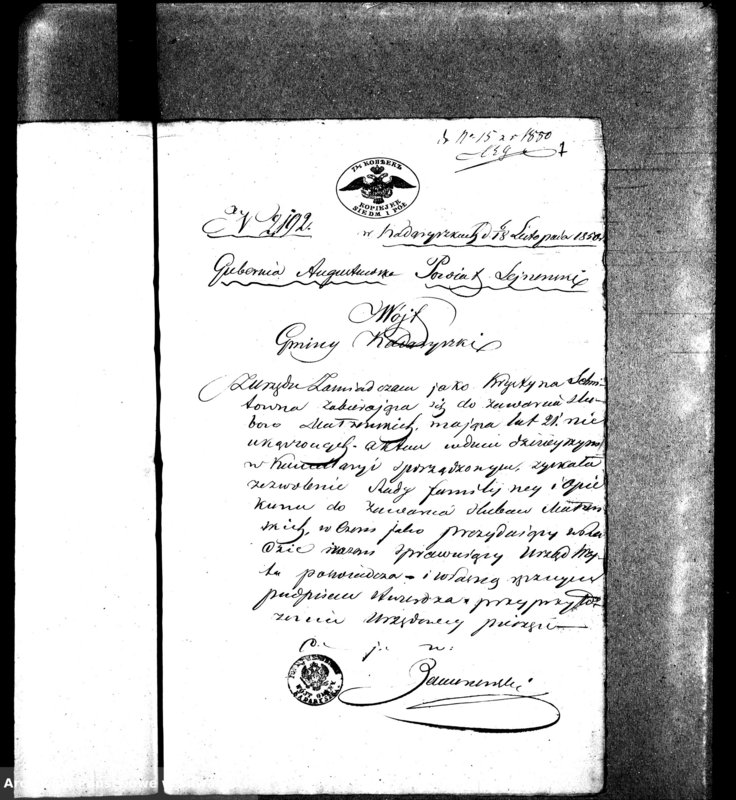 do Nr 15 z r 1850
1
7½ КОПѢЕКЪ
KOPIEJEK
SIEDM I PÓŁ
N 2192.
w Kadaryszkach d 6/18 Listopada 1850 r
Gubernia Augustowska Powiat Sejneński
Wójt
Gminy Kadaryszki
Z urzędu Zaświadczam jako Krystyna
towna zabierająca się do zawarcia Ślu-
bów Małżeńskich, mająca lat 21. nie
ukończonych. aktem w dniu dzisiejszym
w Kancellaryi sporządzonym, zyskała
zezwolenie Rady familijney i Opie
kuna do zawarcia Ślubów Małżeń
skich, w czem jako prezydujący w Ra
dzie razem sprawujący Urząd Wój-
ta poświadcza - i własnym
podpisem stwierdza - przy przyłoż-
zeniu Urzędowey pieczęci -
WÓJT GMINY
KADARYSZKI